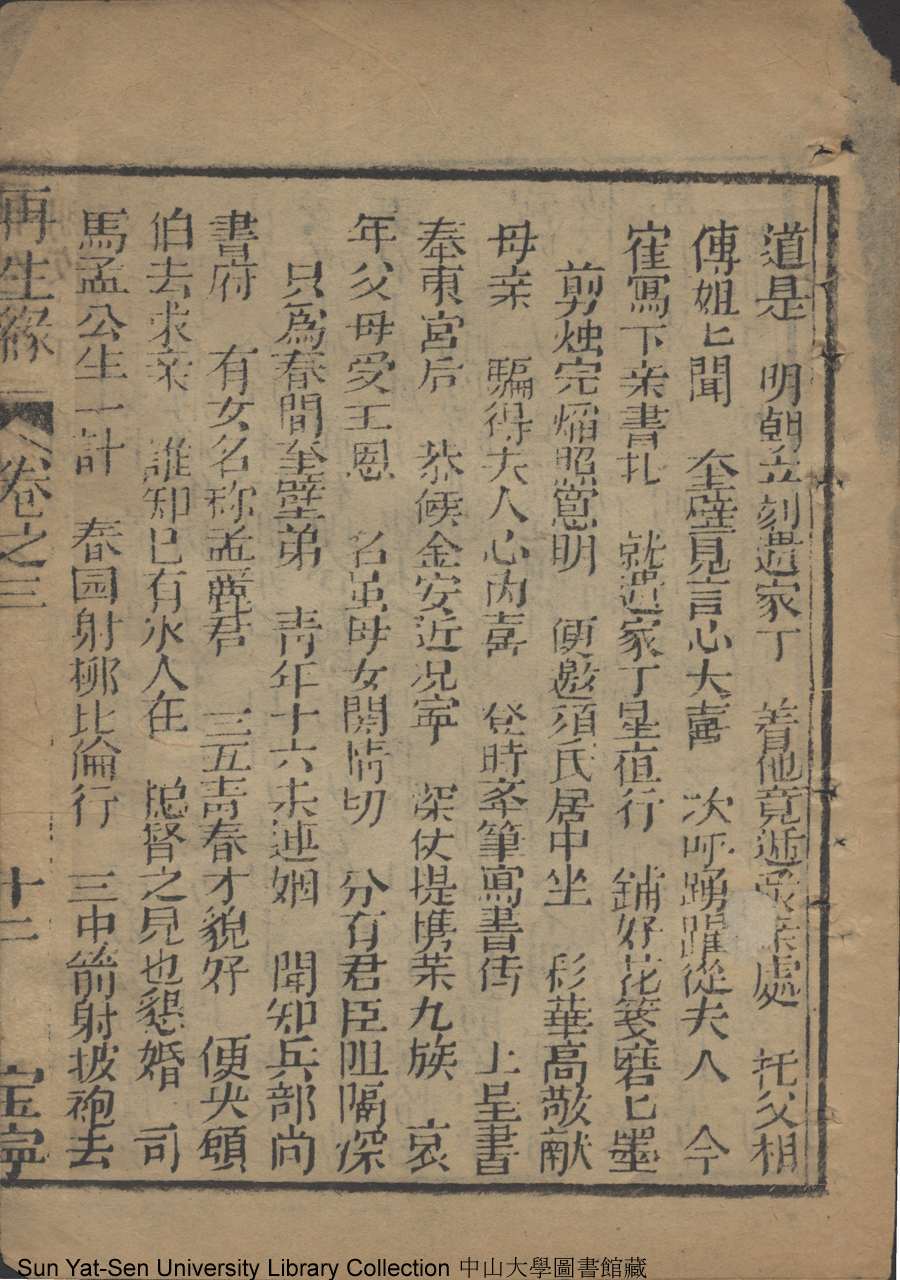 道是　明朝立刻遣家丁　着他竟遞　處　托父相
傳姐匕聞　奎璧見言心大喜　次呼踴躍從夫人　今
宵寫下亲書扎　就遣家丁星夜行　鋪好花箋磨匕墨
剪烛完熖照窻明　便邀須氏居中坐　彩華高敞献
母亲　騙得夫人心内喜　登時奉筆寫書传　上呈書
奉東宮后　恭候金安近况寧　深仗堤携荣九族　哀
年父母受王恩　名虽母女関情切　分有君臣阻隔深
只為春間奎璧弟　青年十六未連姻　聞知兵部尚
書府　有女名称孟麗君　三五青春才貌好　便央頭
伯去求亲　誰知已有氷人在　総督之見也懇婚　司
馬孟公生一計　春园射柳比倫行　三中箭射披袍去
再生緣　卷之三　十二　宝寧
Sun Yat-Sen University Library Collection 中山大學圖書館藏